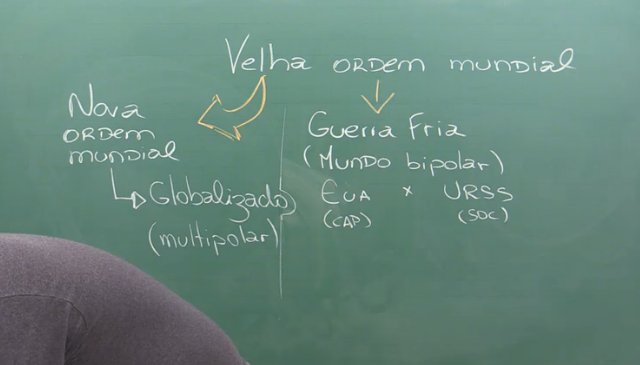 Velha ORDEM MUNDIAL
Nova
ORDEM
MUNDIAL
Globalizado
(multipolar)
Guerra Fria
(Mundo bipolar)
EUA x URSS
(CAP) (SOC)